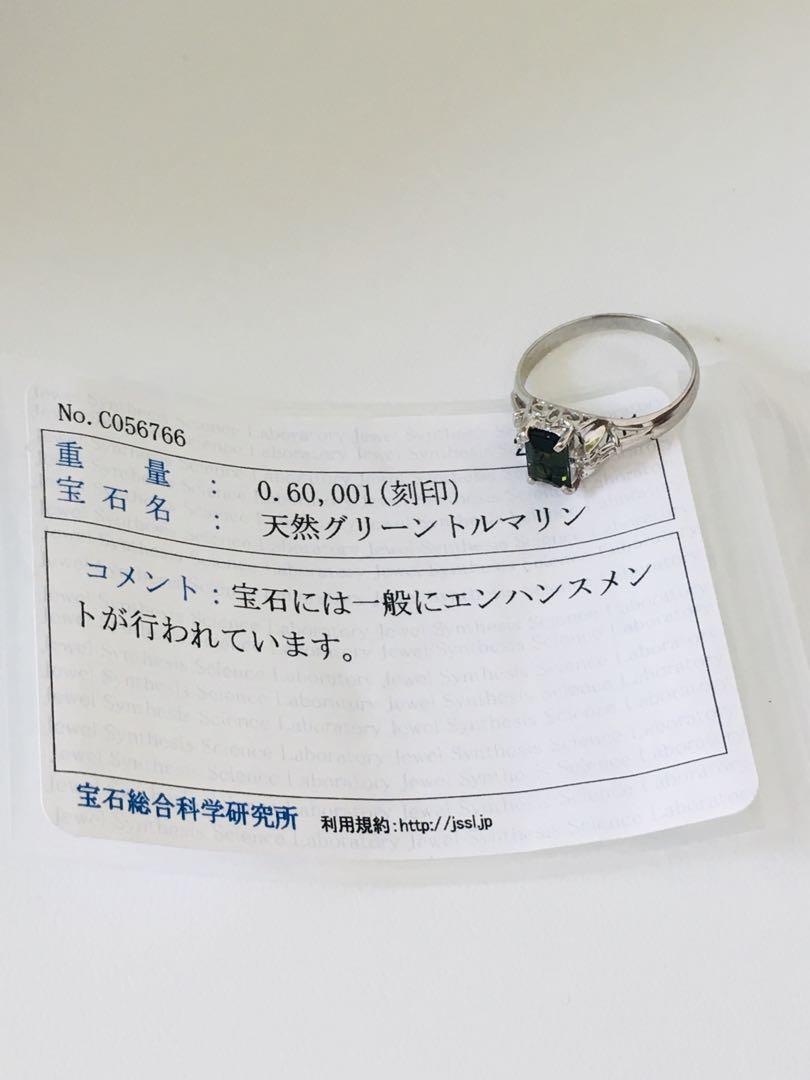 No. C056766
重量 : 0.60,001(刻印)
宝石名 : 天然グリーントルマリン
コメント : 宝石には一般にエンハンスメン
トが行われています。
宝石総合科学研究所 利用規約:http://jssl.jp
Jewel Synthesis Science Laboratory